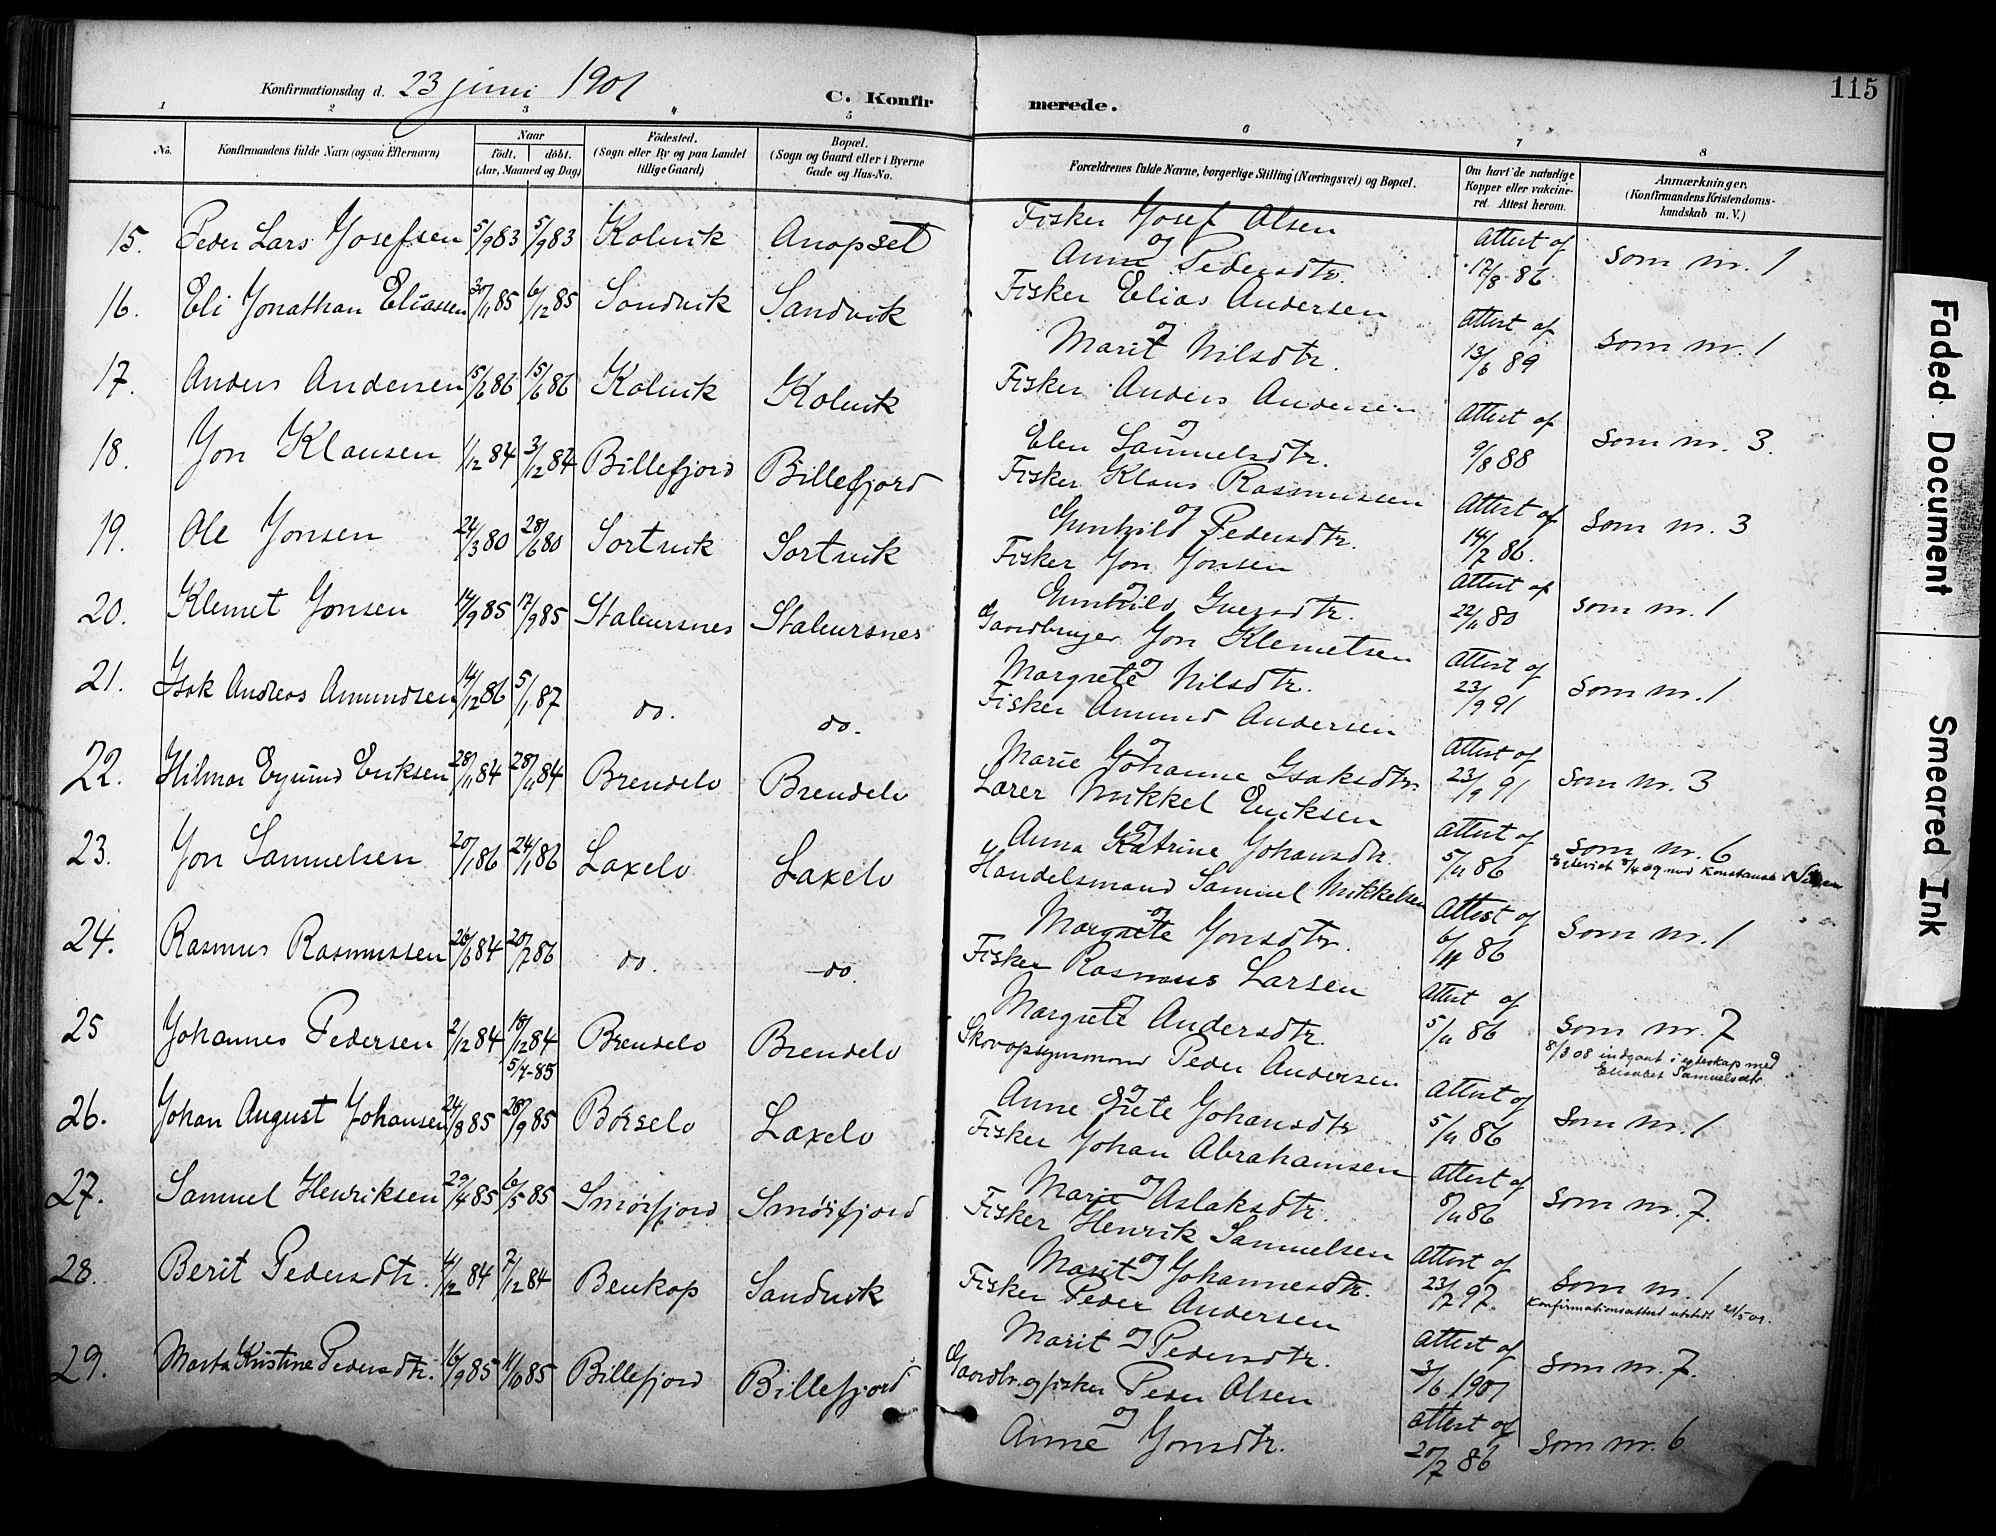 115
Konfirmationsdag d. 23 juni 1901
C. Konfirmerede.
1 2 3 4 5 6 7 8
No.
Konfirmandens fulde Navn (ogsaa Efternavn)
Naar
født. døbt.
(Aar, Maaned og Dag)
Fødested.
(Sogn eller By og paa Landet
tillige Gaard)
Bopæl.
(Sogn og Gaard eller i Byerne
Gade og Hus-No.
Forældrenes fulde Navne, borgerlige Stilling (Næringsvei) og Bopæl.
Om havt de naturlige
Kopper eller vakcine-
ret. Attest herom.
Anmærkninger.
(Konfirmandens Kristendoms-
kundskab m. V.)
15. Peder Lars Josefsen 5/9 83 5/9 83 Kolvik Anopset Fisker Josef Olsen
og
Anne Pedersdtr. Attest af 17/8 86 Som nr. 1
16. Eli Jonathan Eliassen 30/11 85 6/12 85 Sandvik Sandvik Fisker Elias Andersen
og
Marit Nilsdtr. Attest af 13/6 89 Som nr. 1
17. Anders Andersen 5/2 86 15/6 86 Kolvik Kolvik Fisker Anders Andersen
og
Elen Samuelsdtr. Attest af 9/8 88 Som nr. 3.
18. Jon Klausen 1/12 84 3/12 84 Billefjord Billefjord Fisker Klaus Rasmussen
og
Gunhild Pedersdtr. Attest af 14/7 86. Som nr. 3
19. Ole Jonsen 24/3 80 28/6 80 Sortvik Sortvik Fisker Jon Jonsen
og
Gunhild Iversdtr. Attest af 22/11 80 Som nr. 1
20. Klemet Jonsen 14/9 85 17/9 85 Stabursnes Stabursnes Gaardbruger Jon Klemetsen
og
Margrete Nilsdtr. Attest af 23/9 91 Som nr. 1
21. Isak Andreas Amundsen 14/12 86 5/1 87 do. do. Fisker Amund Andersen
og
Marie Johanne Isaksdtr Attest af 23/9 91 Som nr. 3
22. Hilmar Eyvind Eriksen 28/11 84 28/11 84 Brendelv Brendelv Lærer Mikkel Eriksen
og
Anna Katrine Johansdtr. Attest af 5/11 86 Som nr. 6
23. Jon Samuelsen 20/1 86 24/1 86 Laxelv Laxelv Handelsmand Samuel Mikkelsen
og
Margrete Jonsdtr. Attest af 6/4 86 Som nr. 1
24. Rasmus Rasmussen 26/6 84 20/7 86 do. do. Fisker Rasmus Larsen
og
Margrete Andersdtr. Attest af 5/11 86 Som nr. 7
8/3 08 indgaat i egteskap med
Elisabet Samuelsdtr.
25 Johannes Pedersen 2/12 84 18/12 84
5/4-85 Brendelv Brendelv Skovopsynsmand Peder Andersen
og
Anne Grete Johansdtr Attest af 5/11 86 Som nr. 1
26. Johan August Johansen 24/8 85 28/9 85 Børselv Laxelv Fisker Johan Abrahamsen
og
Marie Aslaksdtr. Attest af 8/11 86 Som nr. 7.
27. Samuel Henriksen 29/4 85 6/5 85 Smørfjord Smørfjord Fisker Henrik Samuelsen
og
Marit Johannesdtr. Attest af 23/7 97. Som nr. 1
Konfirmationsattest utstedt
28. Berit Pedersdtr. 4/12 84 7/12 84 Benkop Sandvik Fisker Peder Andersen
og
Marit Pedersdtr. Attest af 3/6 1901 Som nr. 7.
29. Marta Kristine Pedersdtr. 16/9 85 11/10 85 Billefjord Billefjord Gaardbr. og fisker Peder Olsen
og
Anne Jonsdtr. Attest af 20/7 86 Som nr. 6
Faded Document
Smeared Ink